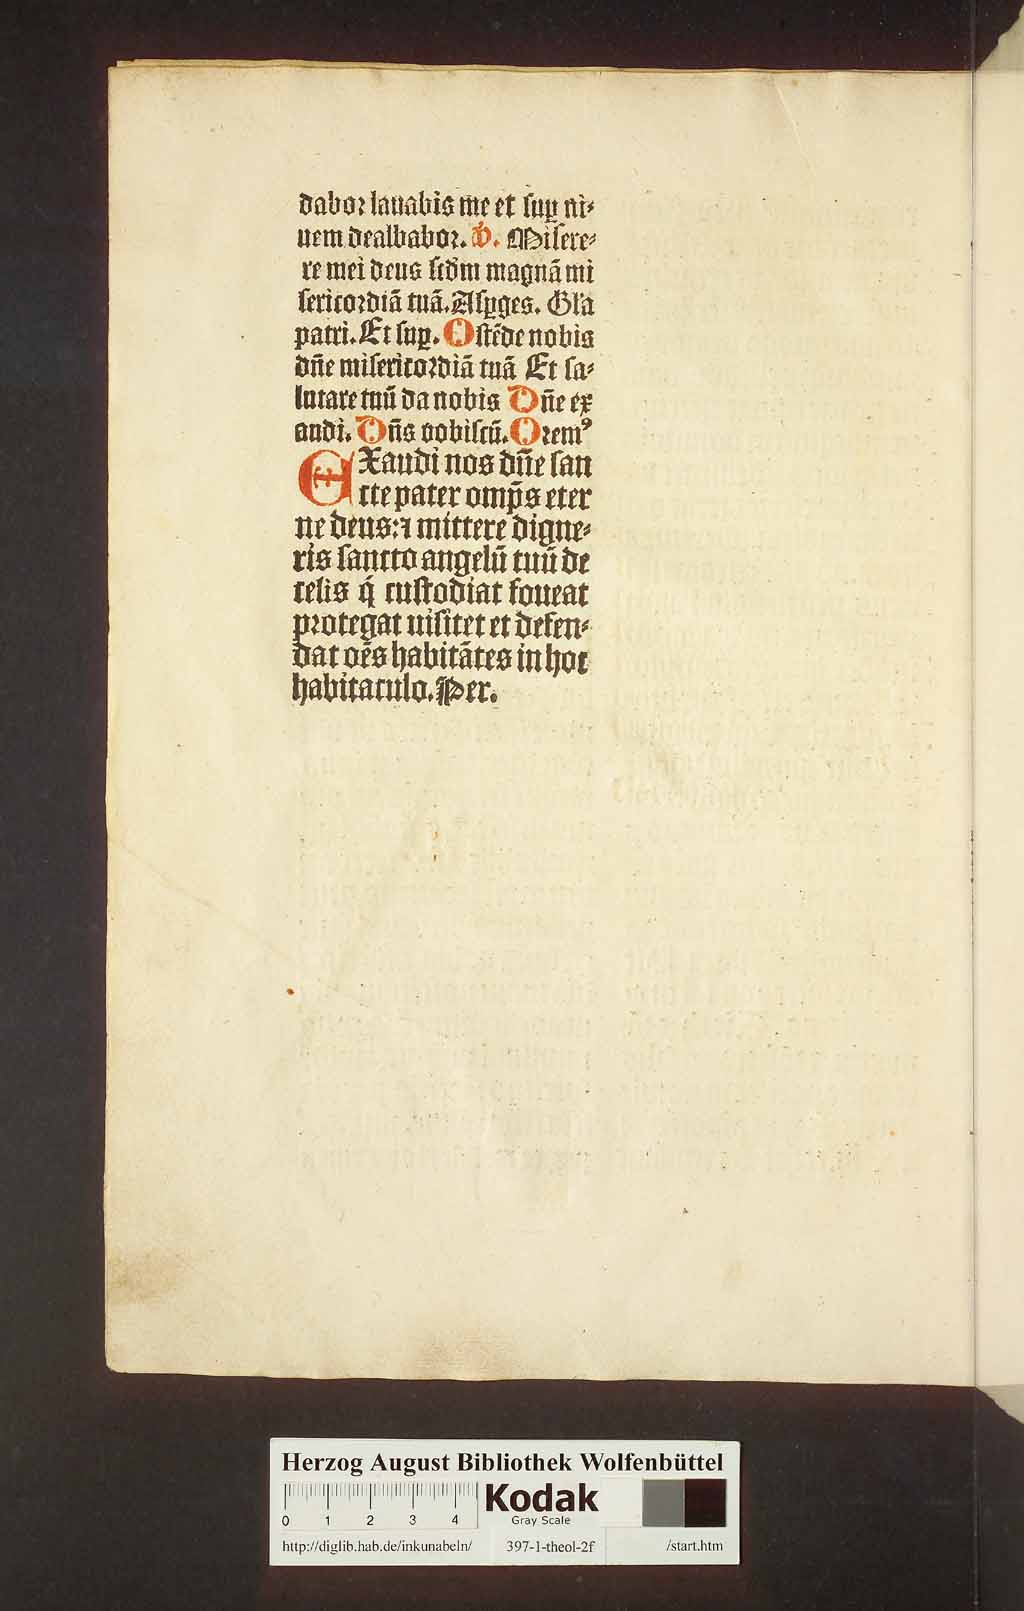 dabor lauabis me et suꝑ ni⸗
uem dealbabor. V. Misere⸗
re mei deus scd̄m magnā mi
sericordiā tuā. Asꝑges. Gl̄a
patri. Et suꝑ. Ostēde nobis
dn̄e misericordiā tuā Et sa⸗
lutare tuū da nobis Dn̄e ex
audi. Dn̄s vobiscū. Oremꝰ
EXaudi nos dn̄e san
cte pater omp̄s eter
ne deus: ⁊ mittere digne⸗
ris sancto angelū tuū de
celis q̇ custodiat foueat
protegat uisitet et defen⸗
dat oēs habitātes in hoc
habitaculo. Per.
Herzog August Bibliothek Wolfenbüttel
0 1 2 3 4
Kodak
Gray Scale
http://diglib.hab.de/inkunabeln/ 397-1-theol-2f /start.htm